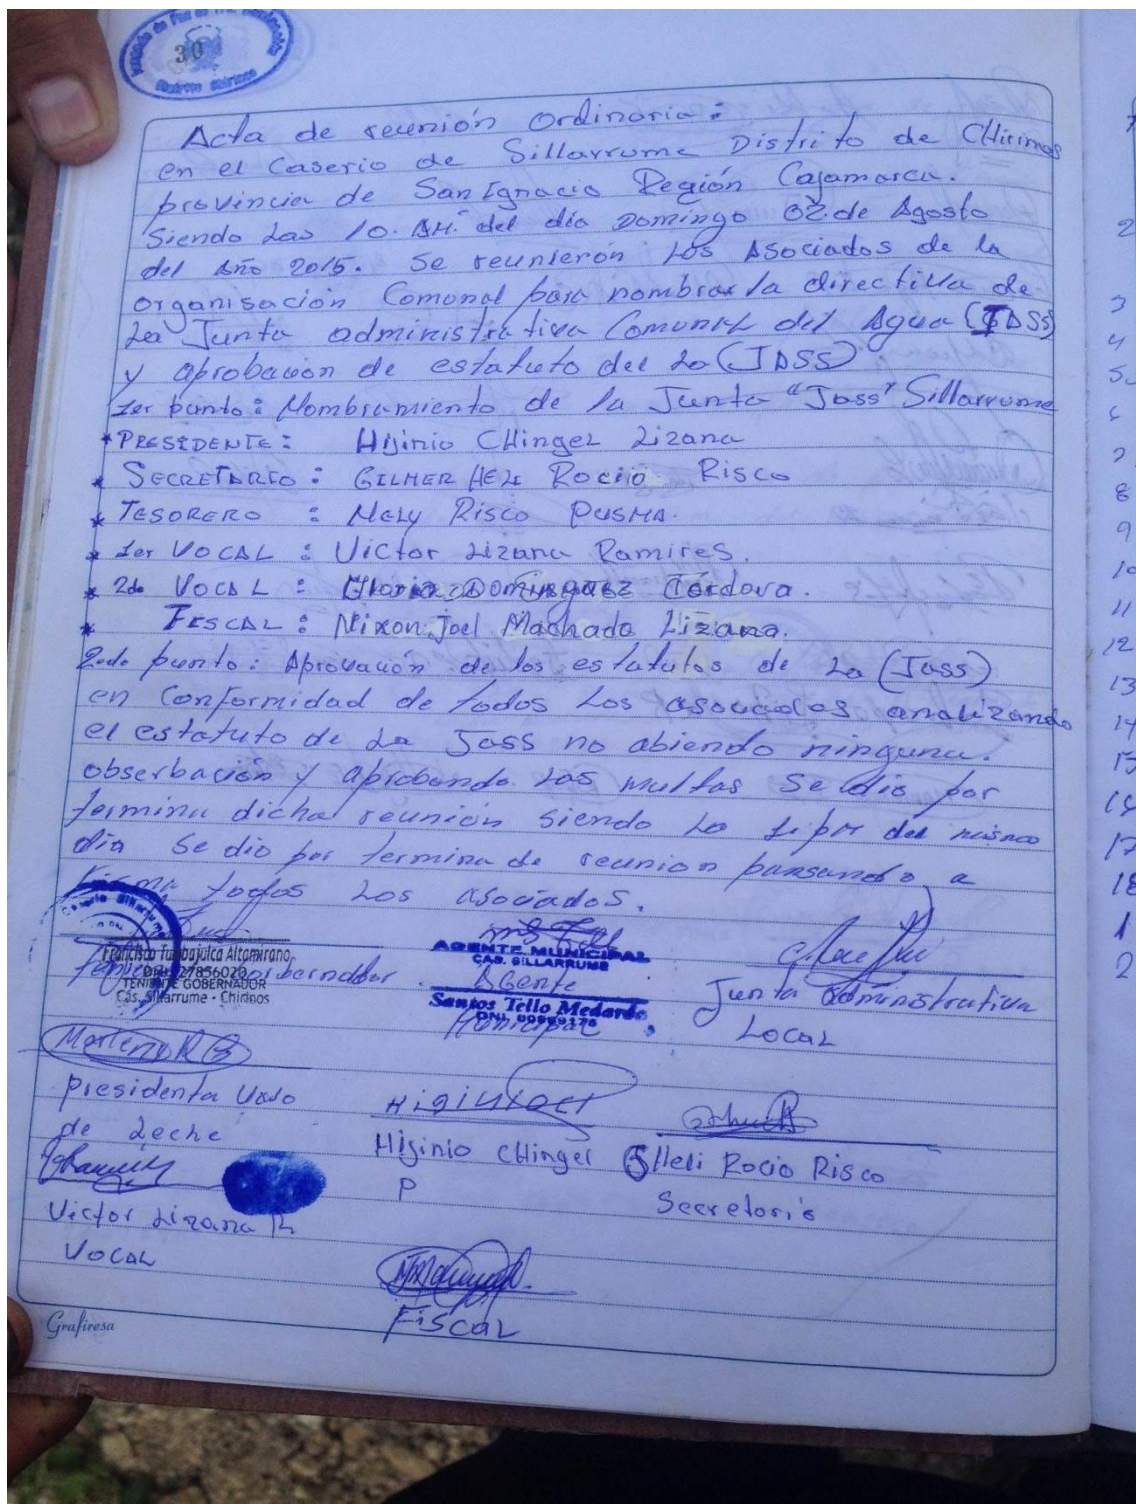 Juzgado de Paz de
30
Distrito Chirinos
Acta de reunión Ordinaria:
en el Caserio de Sillarrume Distrito de CHirinos
provincia de San Ignacio Región Cajamarca.
Siendo Las 10. AM. del día Domingo 02 de Agosto
del Año 2015. Se reunierón Los Asociados de la
organisación Comunal para nombrar la directiva de
La Junta administrativa Comunal del Agua (JASS)
y aprobación de estatuto del La (JASS)
1er punto: Nombramiento de la Junta "Jass" Sillarrume
* PRESIDENTE: Hijinio CHinGel Lizana
* SECRETARIO: GILMER HELI Rocio Risco
* TESORERO : Nely Risco PUSMA.
* 1er VOCAL : Victor Lizana Ramires.
* 2do VOCAL : Gloria Dominguez Córdova.
* FISCAL : Nixon Joel Machado Lizana.
2do punto: Aprovación de los estatutos de La (Jass)
en Conformidad de todos Los asociados analizando
el estatuto de La Jass no abiendo ninguna.
obserbación y aprobando Las multas Se dio por
termina dicha reunión siendo La 1 pm del mismo
día Se dio por termina de reunion pansando a
Firma todos Los asociados.
Caserio Sillarrume
Francisco Tumbajulca Altamirano
DNI. 27856020
TENIENTE GOBERNADOR
Cas. Sillarrume - Chirinos
Teniente Gorbernador.
AGENTE MUNICIPAL
CAS. SILLARRUME
AGente
Santos Tello Medardo
DNI. 00969176
Municipal
Junta administrativa
Local
presidenta Vaso
de Leche
Higinio CH
Hijinio CHinGel
P
G Heli Rocio Risco
Secretario
Victor Lizana R
Vocal
Fiscal
Grafinesa
2
3
4
5
6
7
8
9
10
11
12
13
14
15
16
17
18
1
2